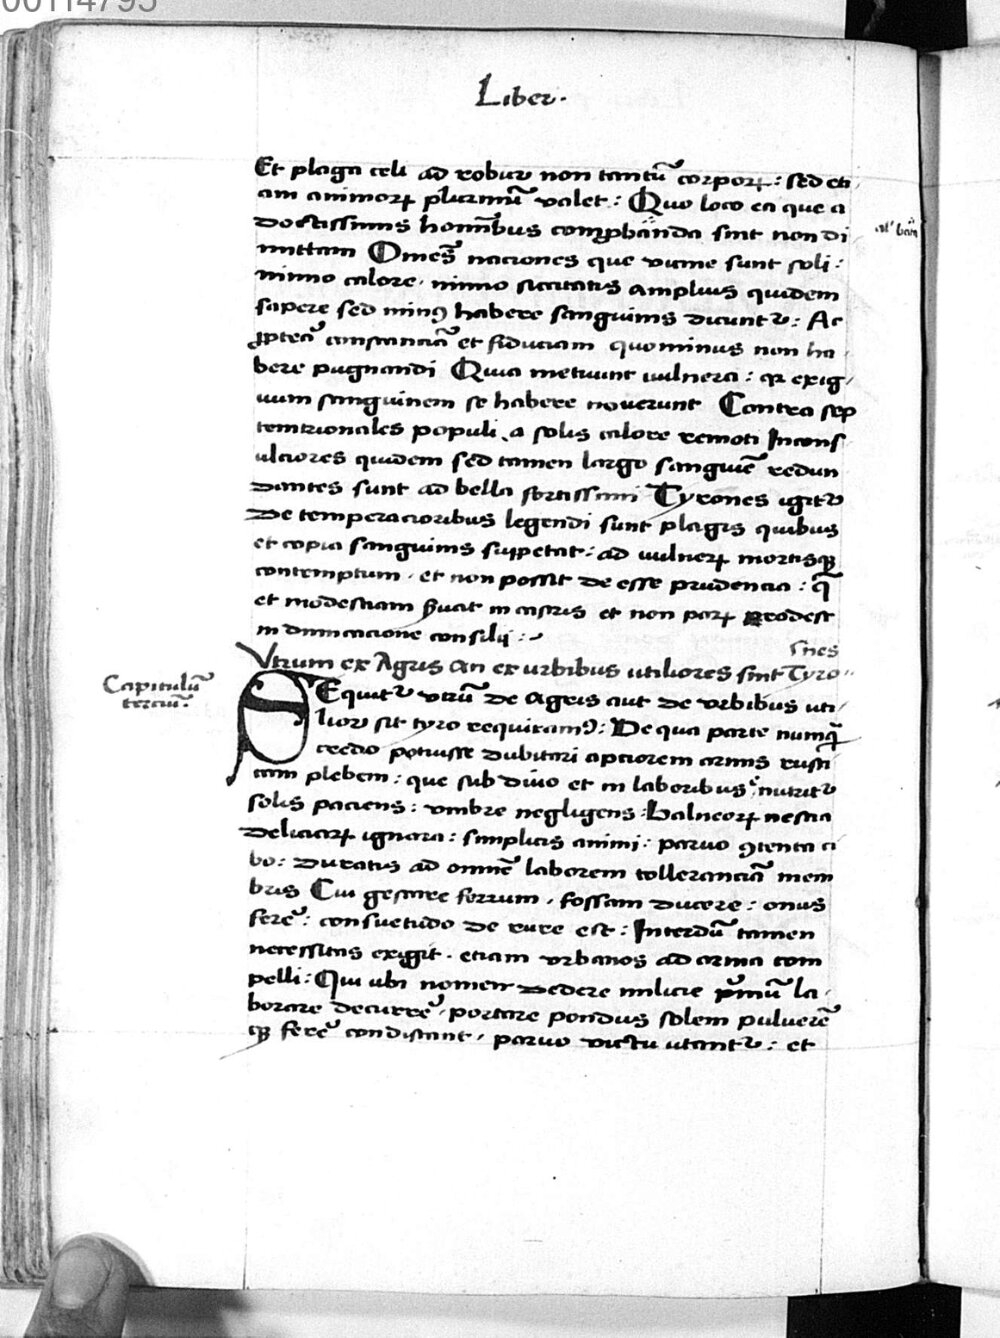 00114795
Liber.
Et plaga celi ad robur non tantū corporꝝ: sed eti
am animorꝝ plurimū valet: Quo loco ea que a
doctissimis hominibus comprobanda sint non di
mittam Omnes naciones que vicine sunt soli:
nimio calore. nimio siccitatis amplius quidem
sapere sed minꝰ habere sanguinis dicuntur: Ac
ꝓpterea constanciā et fiduciam quominus non ha
bere pugnandi Quia metuunt vulnera: qꝛ exig
uum sanguinem se habere noverunt Contra sep
temtrionales populi a solis calore remoti Incons
ulciores quidem sed tamen largo sanguīe redun
dantes sunt ad bella fortissimi Tyrones igitur
De temperacioribus legendi sunt plagis quibus
et copia sanguinis suppetat: ad vulnerꝝ mortisqꝫ
contemptum. et non possit de esse prudencia: q̄
et modestiam ẜuat in castris et non parꝝ prodest
in dimicacione consilij:
Vtrum ex Agris an ex urbibus utiliores sint Tyro
nes
Capitulū
tercium.
Sequitur vtrū de Agris aut de vrbibus uti
lior sit tyro requiramꝰ: De qua parte numq̄
credo potuisse dubitari apciorem armis rusti
cam plebem: que sub divo et in laboribus nutritur
solis paciens: vmbre negligens: Balneorꝝ nescia
Deliciarꝝ ignara: simplicis animi: parvo ꝯtenta ci
bo: Duratis ad omnē laborem tolleranciā mem
bris Cui gestare ferrum, fossam ducere: onus
ferre: consuetudo de rure est: Interdū tamen
necessitas exigit. etiam vrbanos ad arma com
pelli: Qui ubi nomen dedere milicie p̄mū la
borare decurrē, portare pondus solem pulverē
qꝫ ferrē condiscant, parvo victu utantur: et